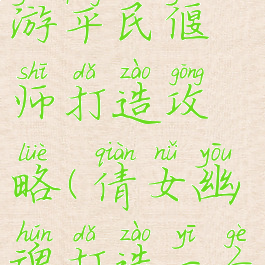 游平民偃
shī dǎ zào gōng
师打造攻
lüè qiàn nǚ yōu
略(倩女幽
hún dǎ zào yī gè
魂打造一个